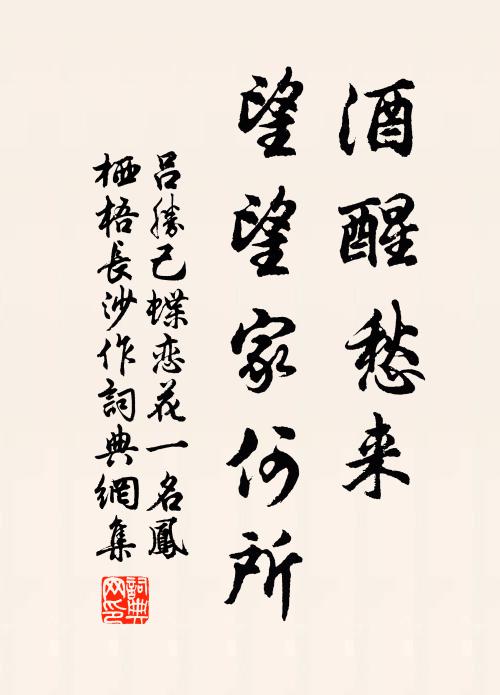 酒醒愁来
望望家何所
吕勝己蝶恋花一名鳳
栖梧長沙作詞典網集
詞典网印